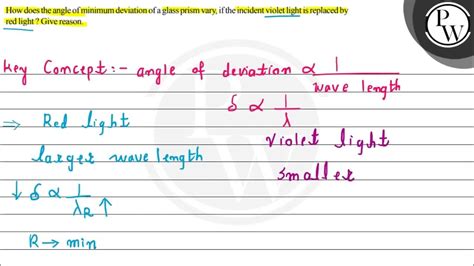 How does the angle of minimum deviation of a glass prism vary, if the incident violet light is replaced by
red light ? Give reason.
PW
Key Concept:- angle of deviation ∝ 1/wave length
δ ∝ 1/λ
⇒ Red light
larger wavelength
violet light
smaller
↓ δ ∝ 1/λR ↑
R → min